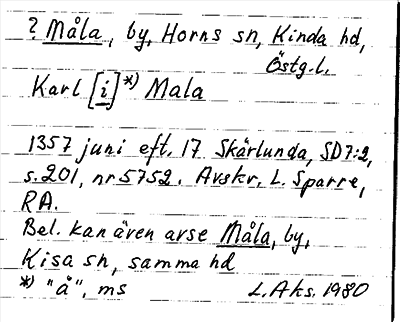 ? Måla, by, Horns sn, Kinda hd,
Östg.l.
Karl [i]*) Mala
1357 juni eft. 17 Skärlunda, SD7:2,
s. 201, nr 5752. Avskr. L. Sparre,
RA.
Bel. kan även avse Måla, by,
Kisa sn, samma hd
*) "å", ms L. Aks. 1980